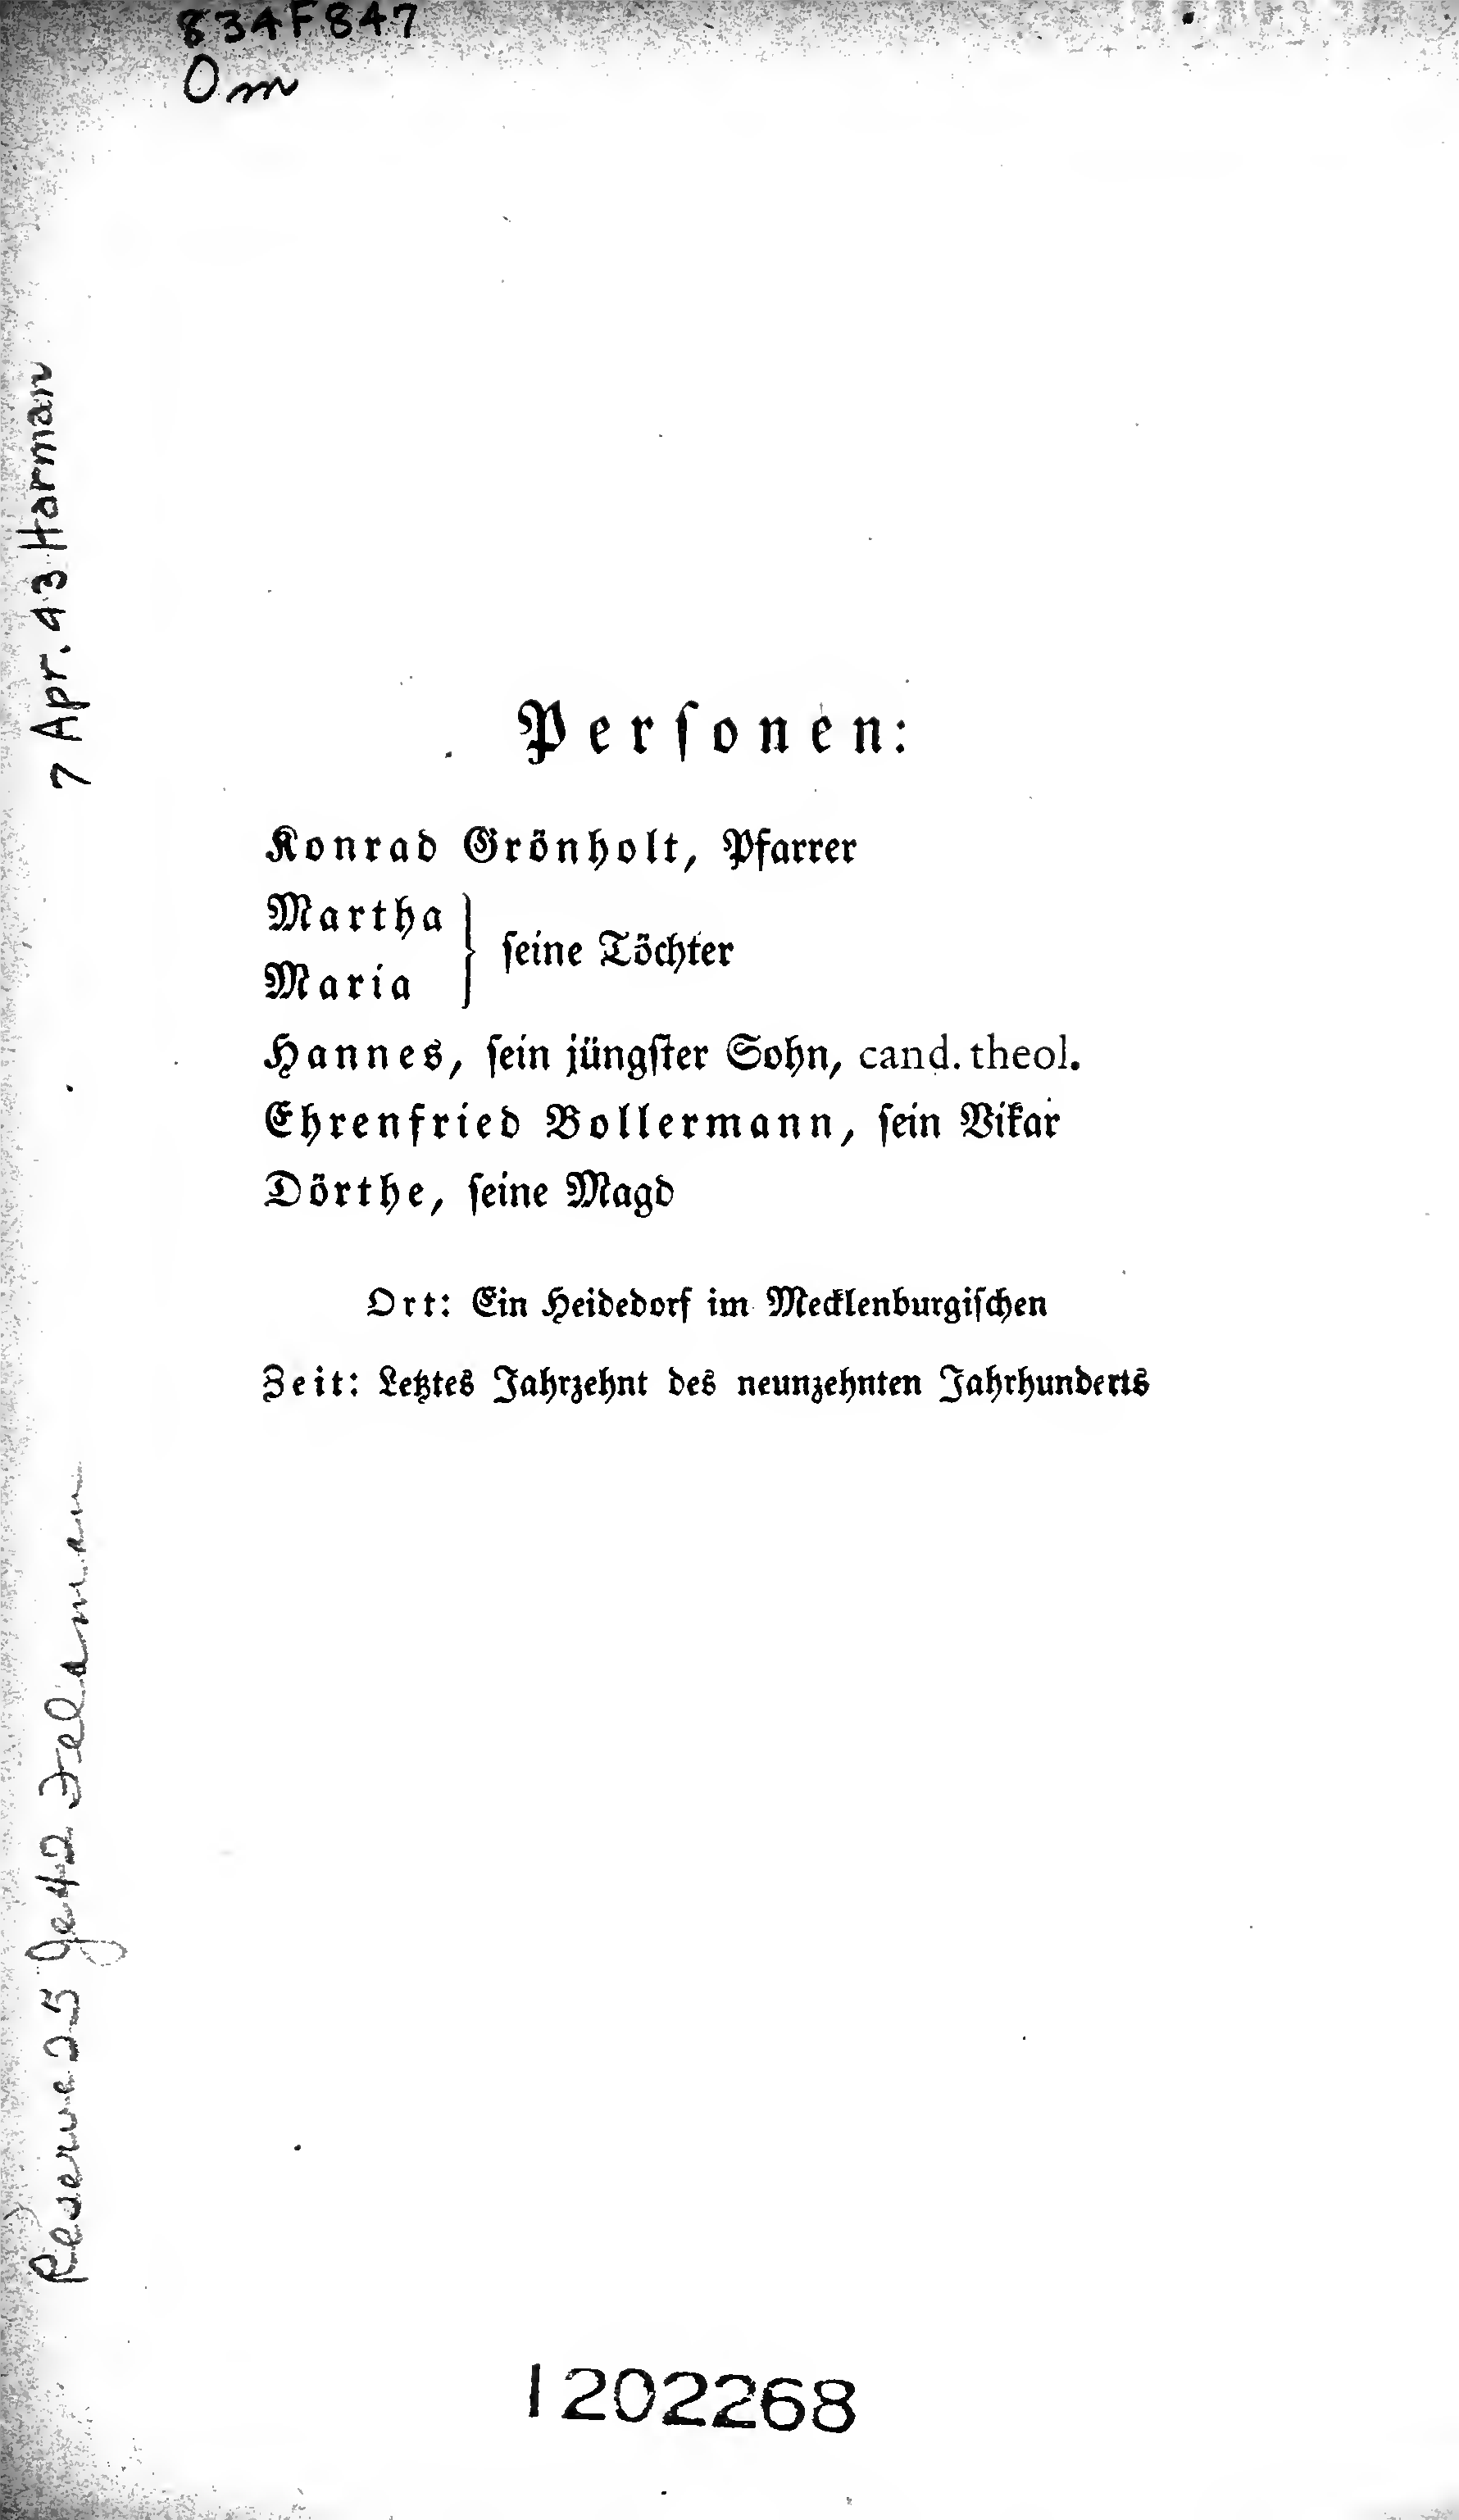 834F847
Om
7 Apr. 43 Harman
Perſonen:
Konrad Grönholt, Pfarrer
Martha
ſeine Töchter
Maria
Hannes, ſein jüngſter Sohn, cand. theol.
Ehrenfried Bollermann, ſein Vikar
Dörthe, ſeine Magd
Ort: Ein Heidedorf im Mecklenburgiſchen
Zeit: Letztes Jahrzehnt des neunzehnten Jahrhunderts
25
1202268